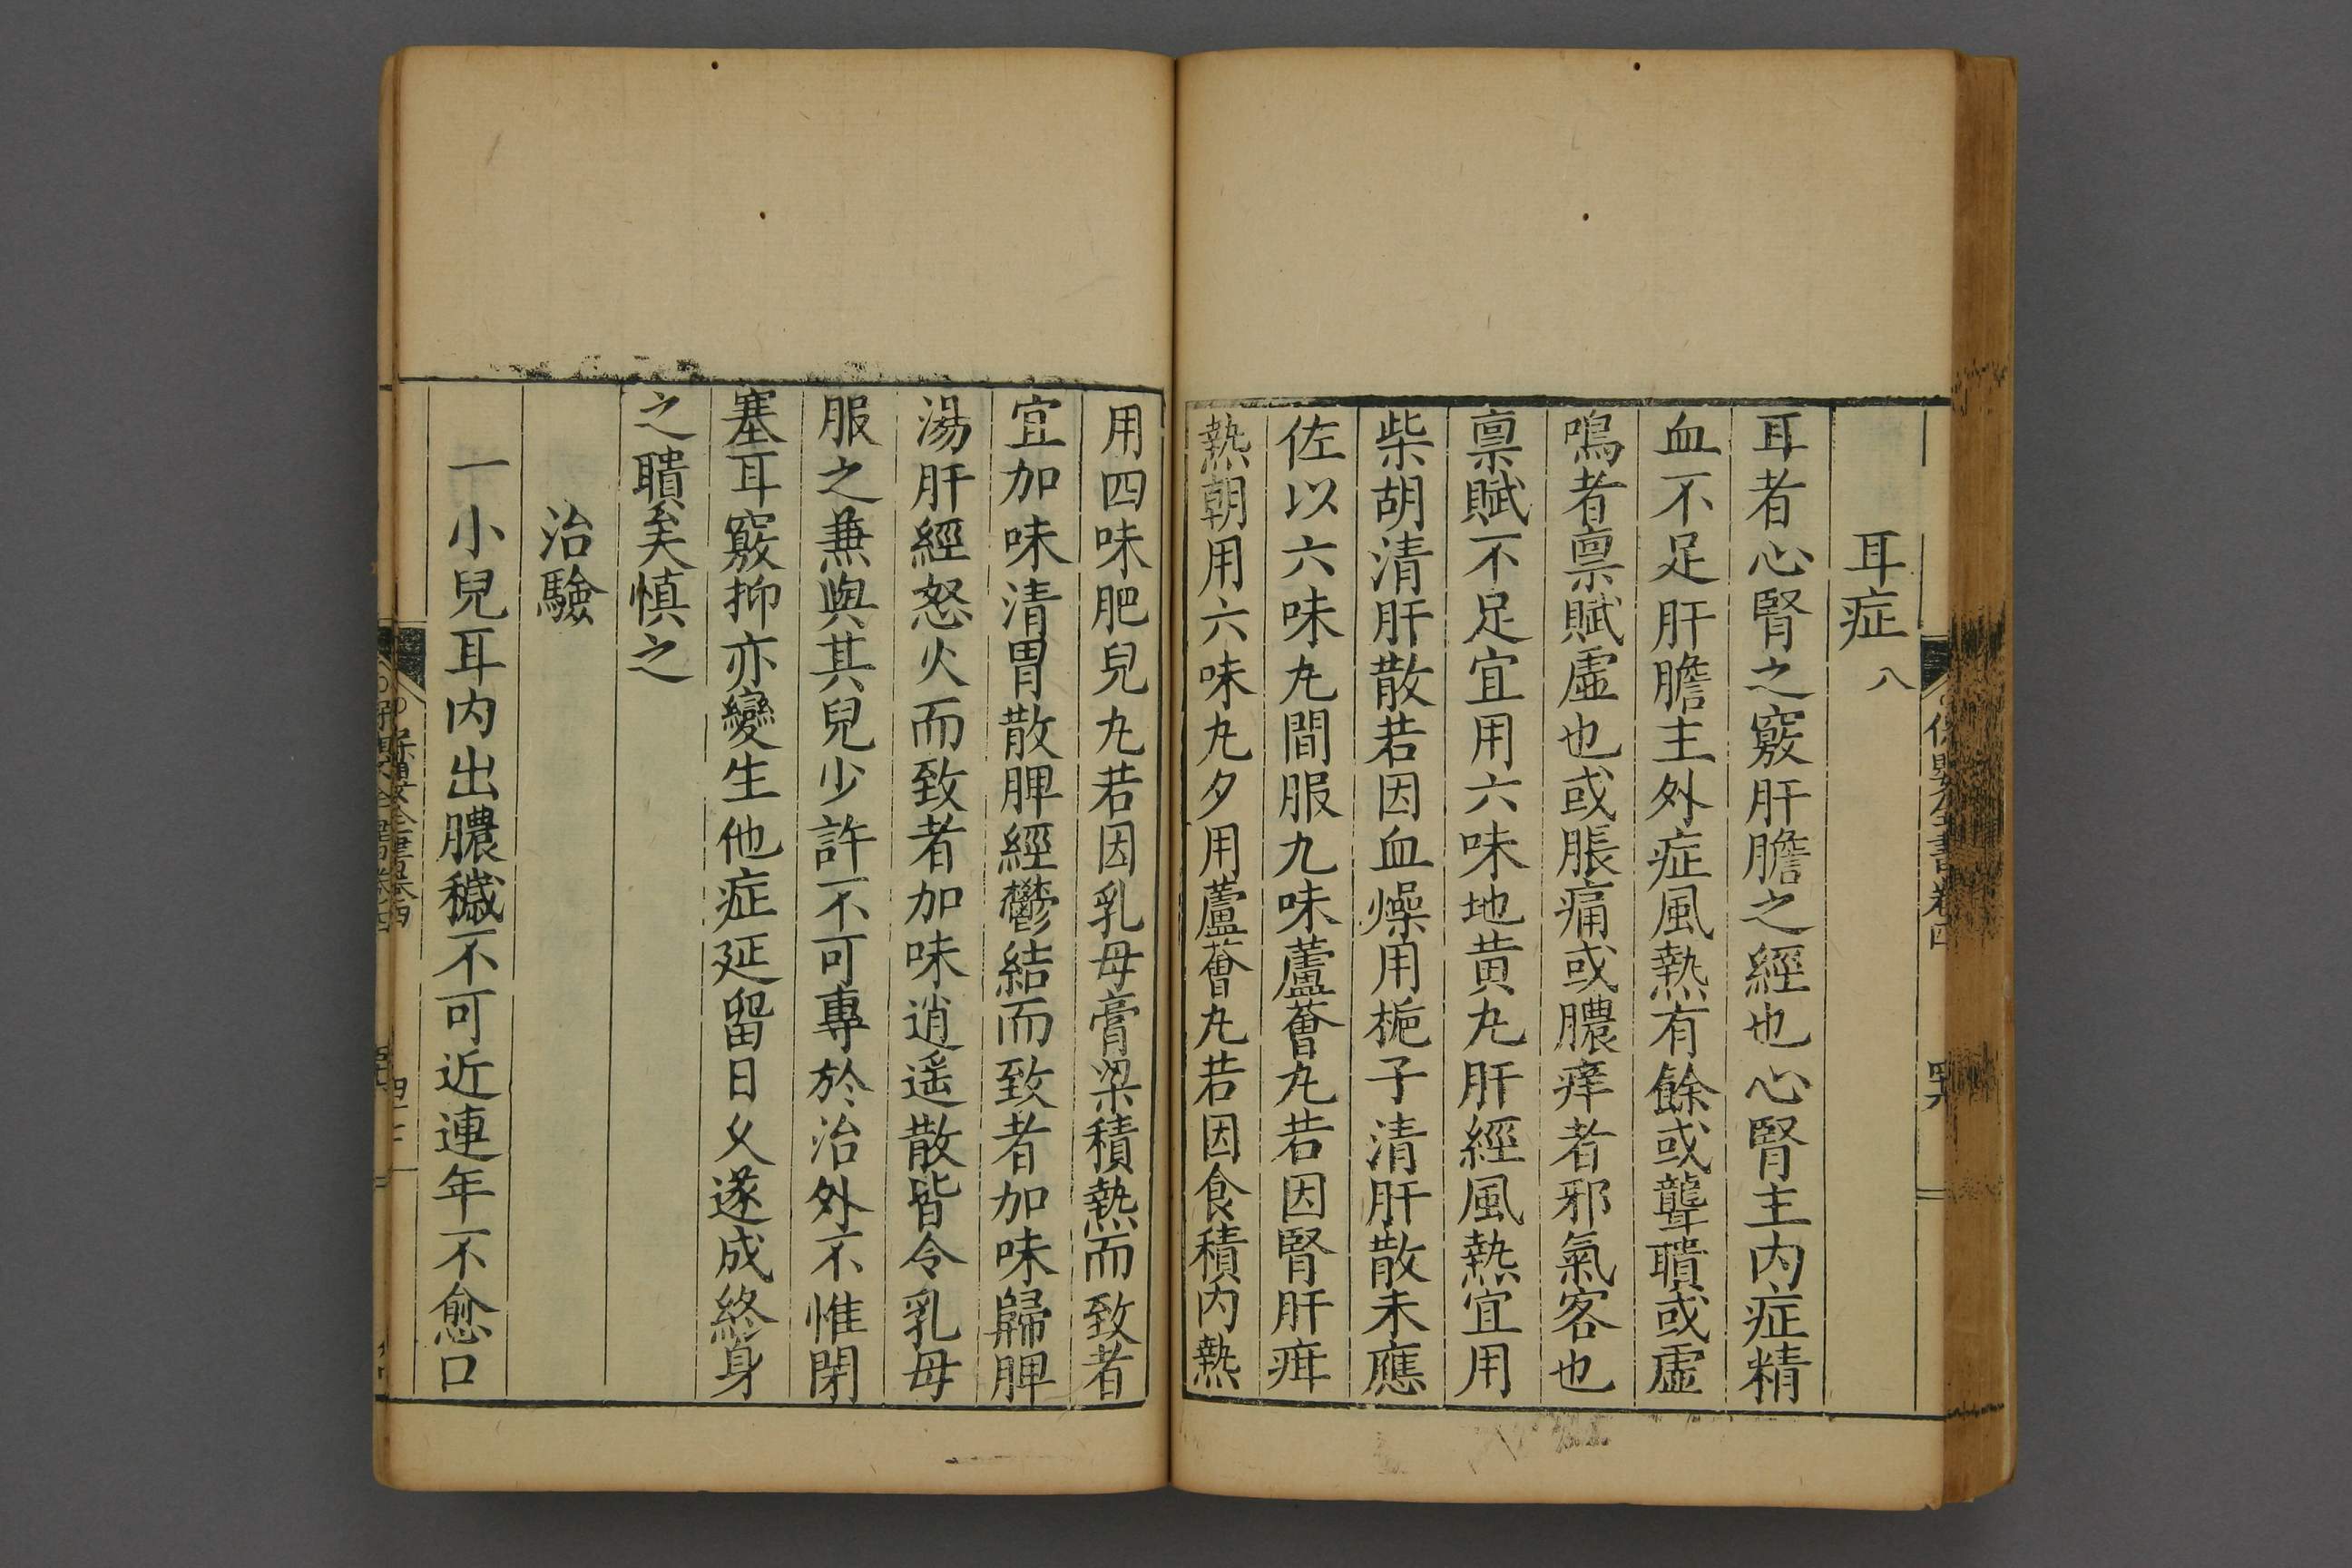 耳症 八
耳者心腎之竅肝膽之經也心腎主内症精
血不足肝膽主外症風熱有餘或聾聵或虛
鳴者禀賦虛也或脹痛或膿痒者邪氣客也
禀賦不足宜用六味地黃丸肝經風熱宜用
柴胡清肝散若因血燥用梔子清肝散未應
佐以六味丸間服九味蘆薈丸若因腎肝疳
熱朝用六味丸夕用蘆薈丸若因食積内熱
用四味肥兒丸若因乳母膏粱積熱而致者
宜加味清胃散脾經鬱結而致者加味歸脾
湯肝經怒火而致者加味逍遥散皆令乳母
服之兼與其兒少許不可專於治外不惟閉
塞耳竅抑亦變生他症延留日久遂成終身
之聵矣慎之
治驗
一小兒耳内出膿穢不可近連年不愈口
保嬰全書卷四